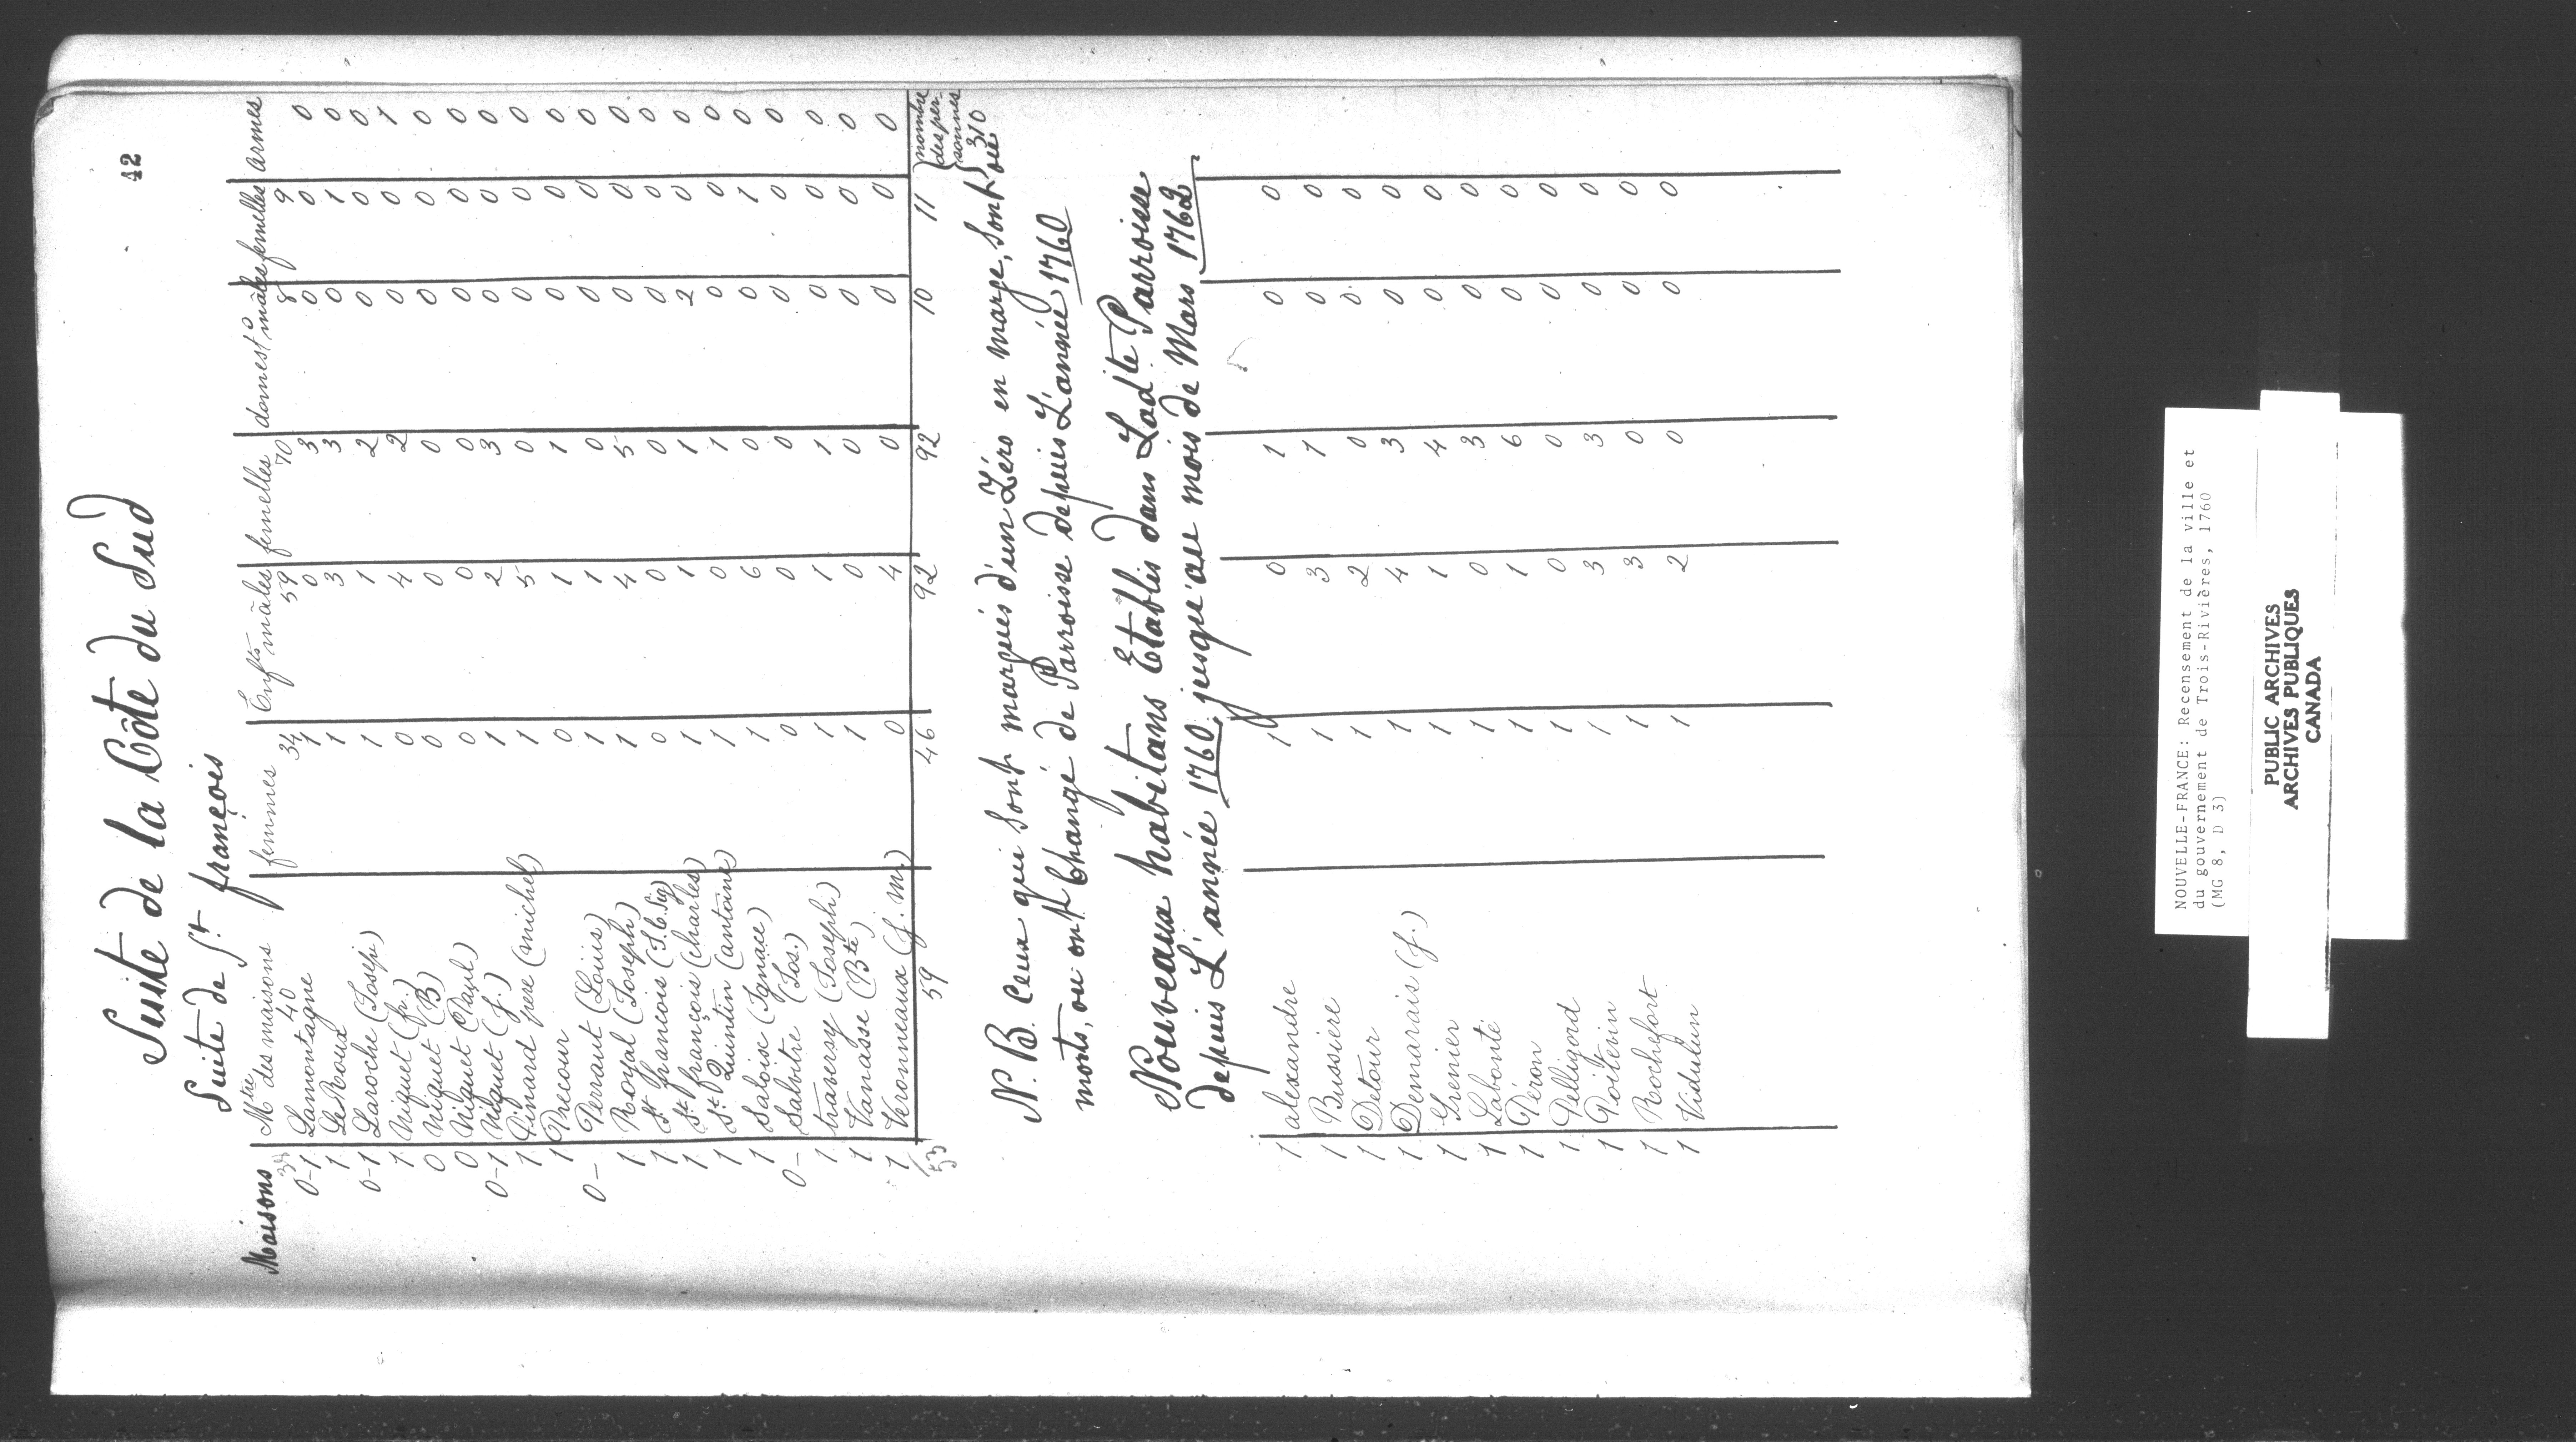 42
Suite de la Côte du Sud
Suite de St. françois
Maisons Mtre des maisons femmes Enfts mâles femelles domest° mâles femelles armes
40 34 59 70 8 9
0-1 Lamontagne 1 0 3 0 0 0
1 Le Roux 1 3 3 0 1 0
0-1 Laroche (Josep) 1 1 2 0 0 0
1 Niquet (fr.) 0 4 2 0 0 1
0 Niquet (B) 0 0 0 0 0 0
0 Niquet (Paul) 0 0 0 0 0 0
0-1 Niquet (J.) 1 2 3 0 0 0
1 Pinard pere (michel) 1 5 0 0 0 0
1 Precour 0 1 1 0 0 0
0- Perraut (Louis) 1 1 0 0 0 0
1 Royal (Joseph) 1 4 5 0 0 0
1 St francois (J.C. Sig) 0 0 0 0 0 0
1 St françois (charles) 1 1 1 2 0 0
1 St Quintin (antoine) 1 0 1 0 0 0
1 Saloise (Ignace) 1 6 0 0 1 0
0- Salvitre (Jos.) 0 0 0 0 0 0
1 traversy (Joseph) 1 1 1 0 0 0
1 Vanasse (Bte) 1 0 0 0 0 0
1 Veronneaux (J. M.) 0 4 0 0 0 0
53 59 46 92 92 10 11 nombre
des per-
sonnes
310
N.B. Ceux qui sont marqués d'un Zéro en marge, sont ou
morts, ou ont Changé de Parroisse depuis L'année 1760
Nouveaux habitans Etablis dans Ladte Parroisse
depuis L'année 1760 jusqu'au mois de Mars 1762
1 alexandre 1 0 1 0 0
1 Bussiere 1 3 1 0 0
1 Detour 1 2 0 0 0
1 Demarais (J.) 1 4 3 0 0
1 Grenier 1 1 4 0 0
1 Labonté 1 0 3 0 0
1 Péron 1 1 6 0 0
1 Pelligord 1 0 0 0 0
1 Poitevin 1 3 3 0 0
1 Rochefort 1 3 0 0 0
1 Vidulun 1 2 0 0 0
NOUVELLE-FRANCE: Recensement de la ville et
du gouvernement de Trois-Rivières, 1760
(MG 8, D 3)
PUBLIC ARCHIVES
ARCHIVES PUBLIQUES
CANADA